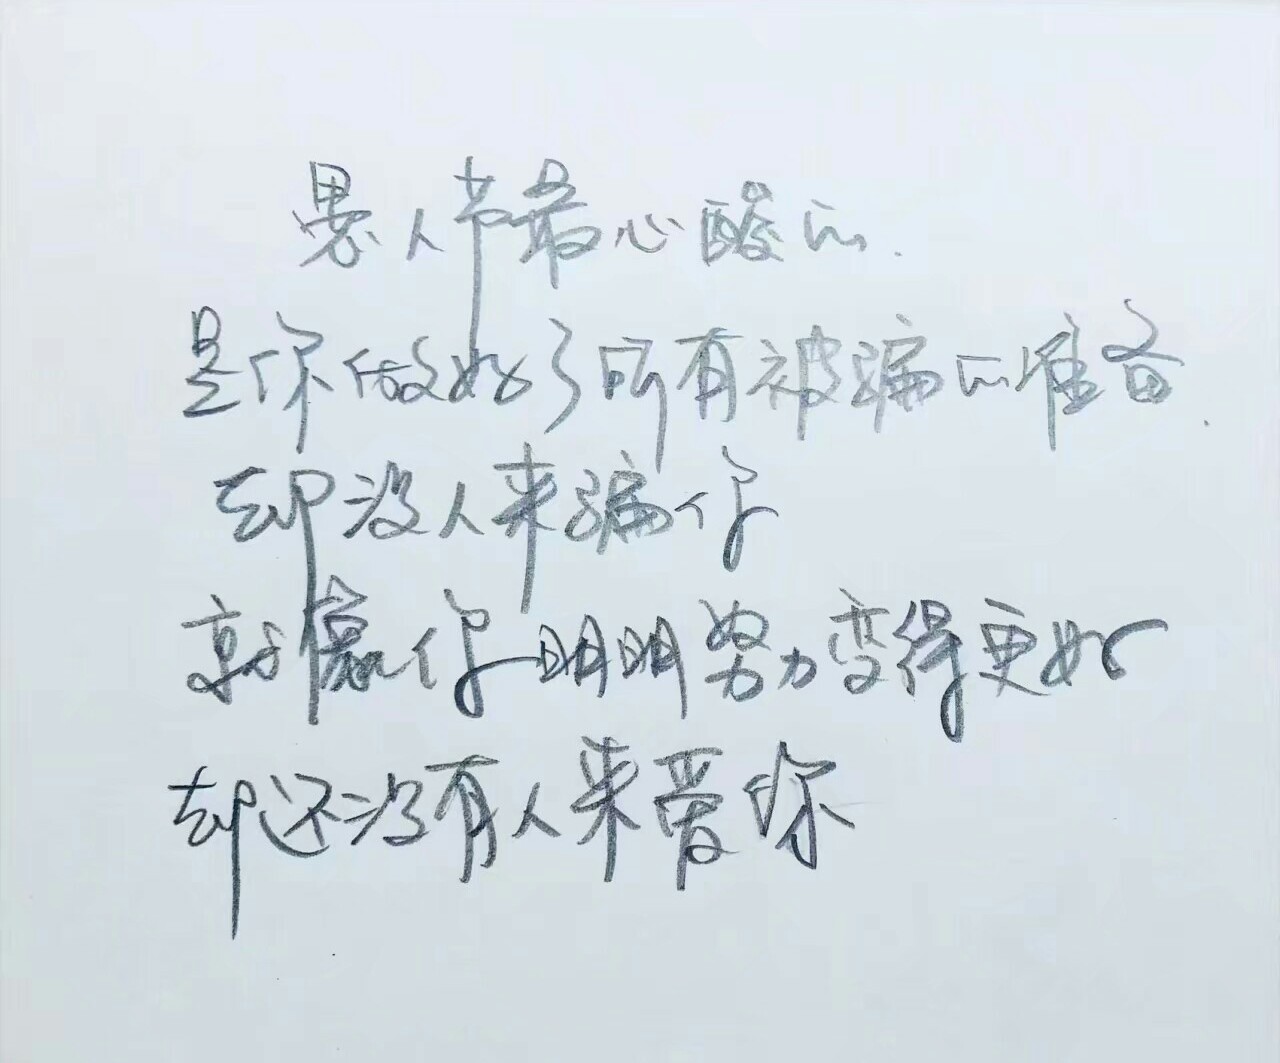 愚人节最心酸的.
是你做好了所有被骗的准备.
却没人来骗你
就像你明明努力变得更好
却还没有人来爱你